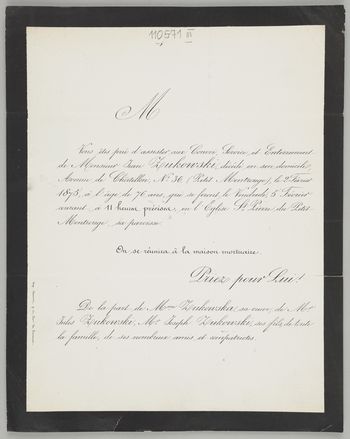 110571 III
M
Vous êtes prié d'assister aux Convoi, Service et Enterrement
de Monsieur Jean Zukowski, décédé en son domicile,
Avenue de Châtillon, No 36 (Petit Montrouge), le 2 Février
1875, à l'âge de 76 ans, qui se feront le Vendredi, 5 Février
courant, à 11 heures précises, en l'Eglise St Pierre du Petit
Montrouge, sa paroisse.
On se réunira à la maison mortuaire.
Priez pour Lui!
De la part de Mme Zukowska, sa veuve, de Mr
Jules Zukowski, Mr Joseph Zukowski, ses fils, de toute
la famille, de ses nombreux amis et compatriotes.